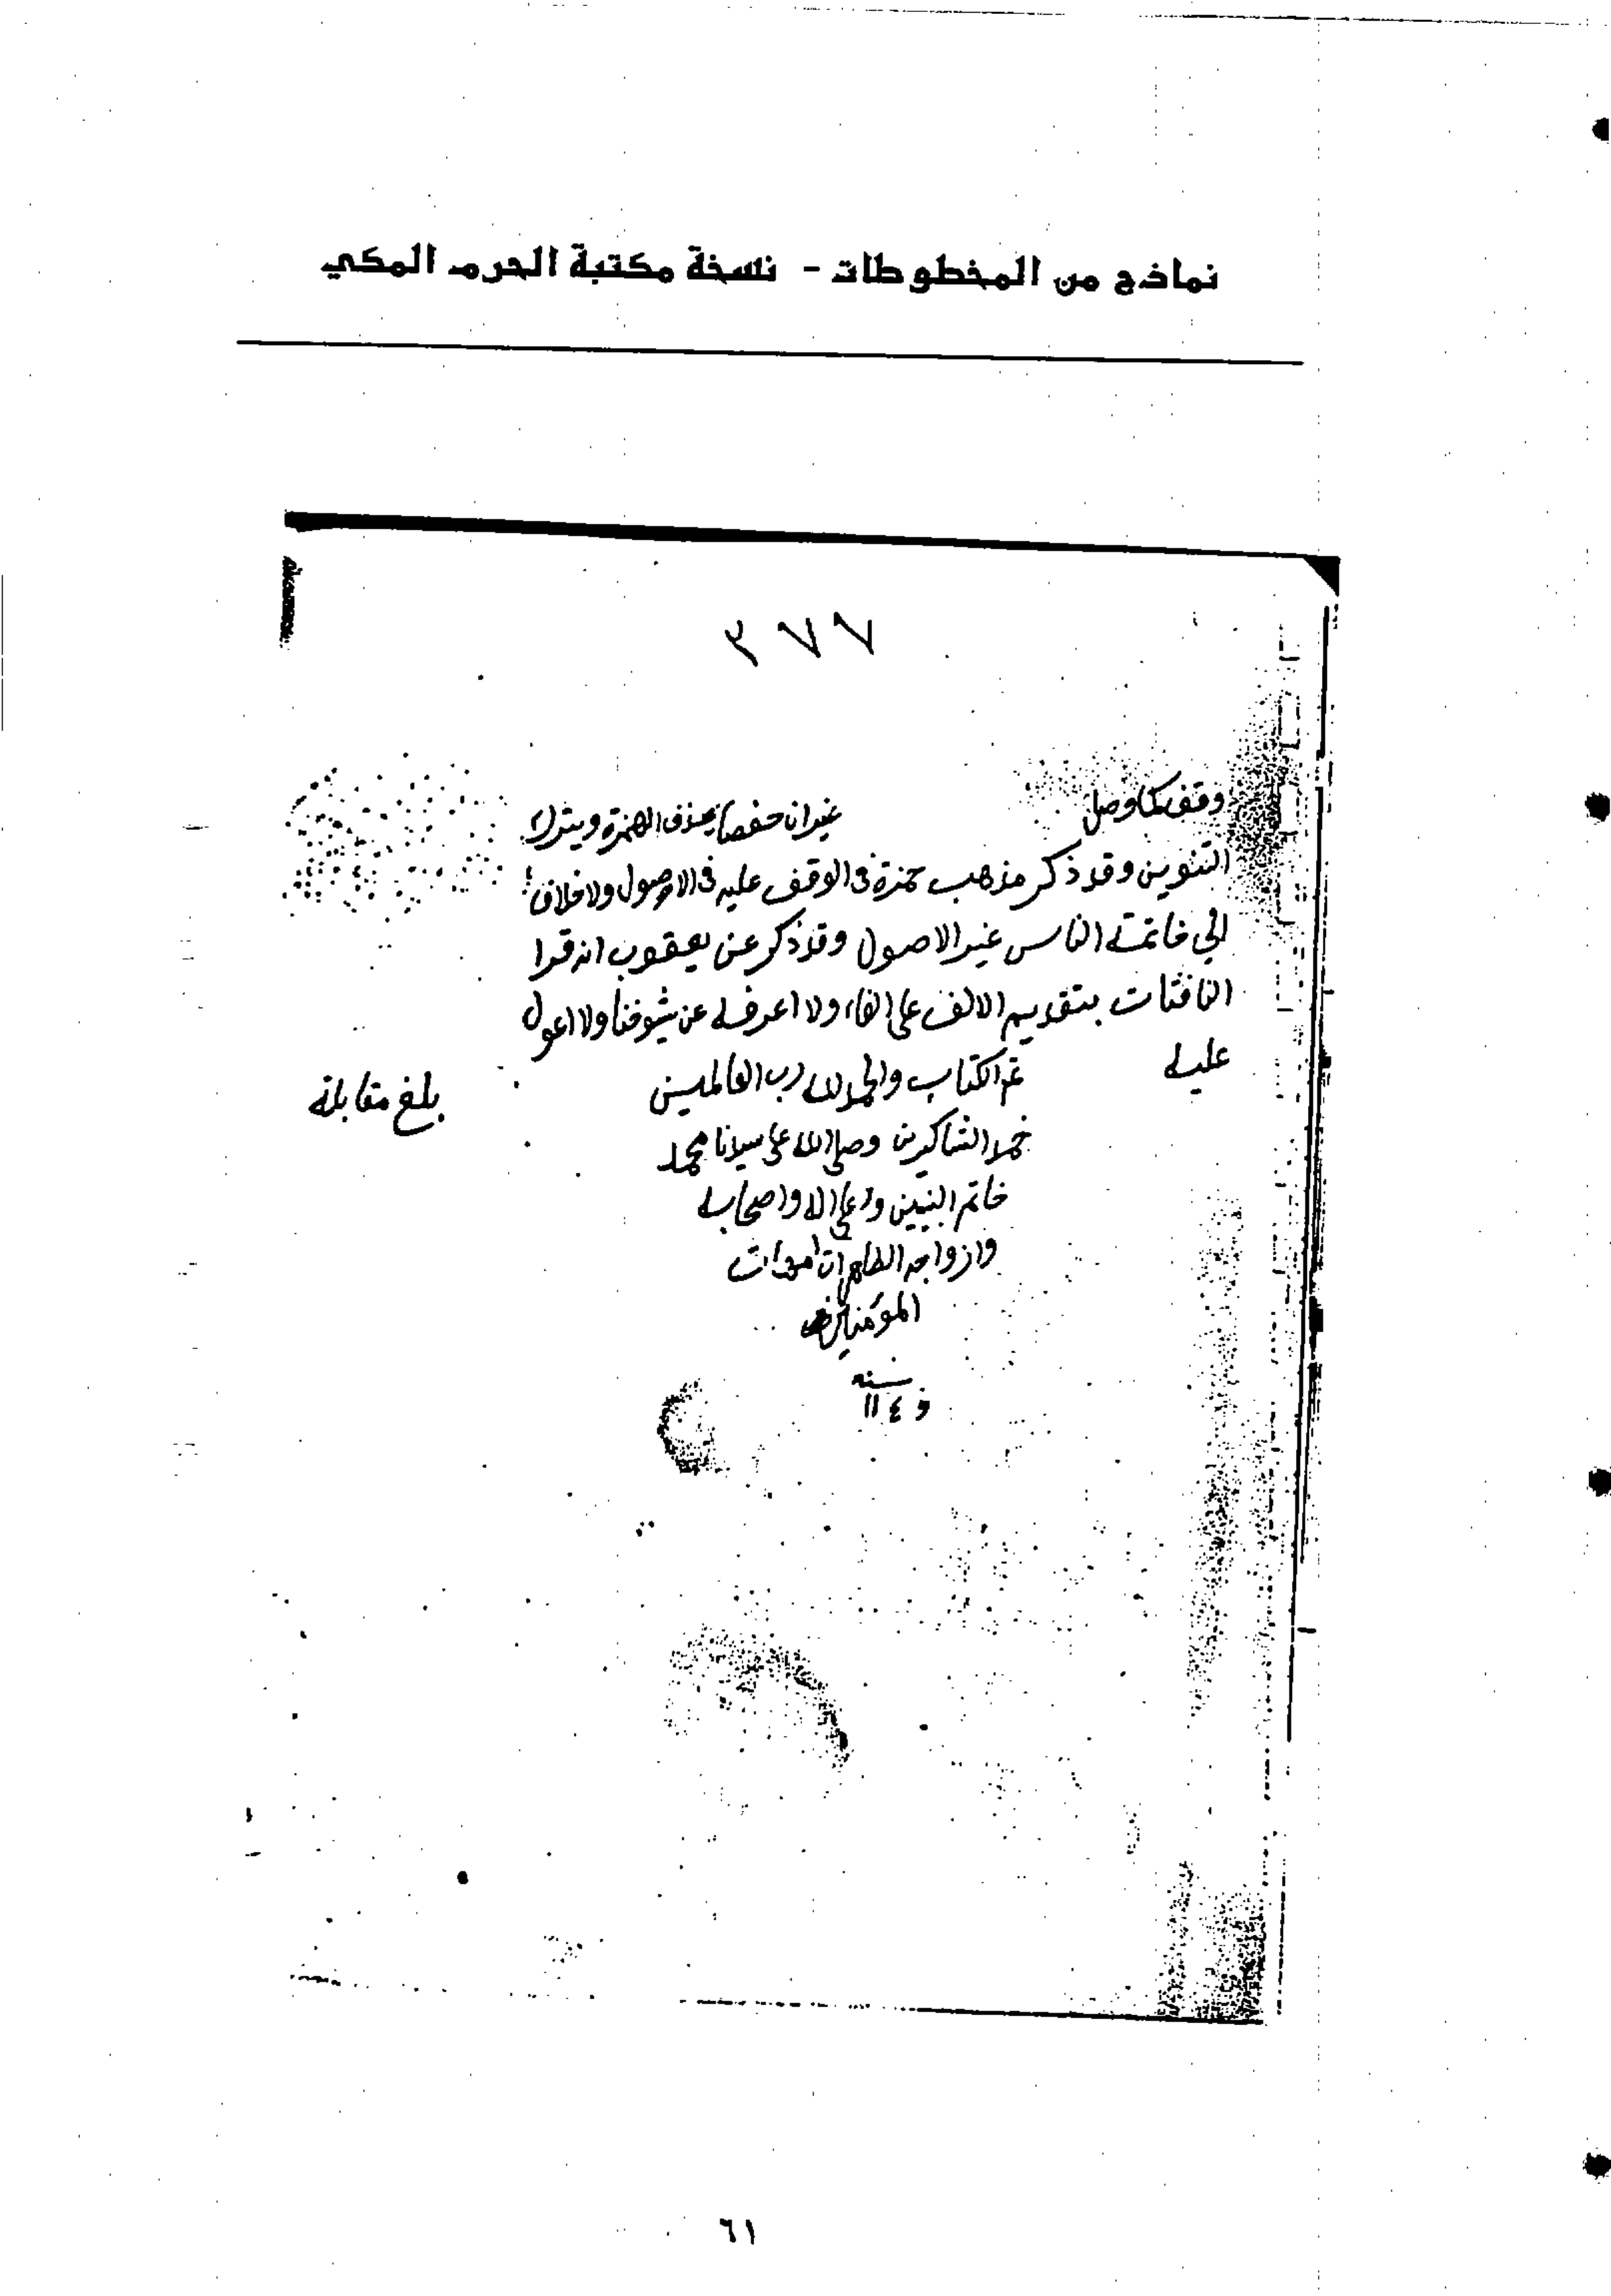 نماذج من المخطوطات - نسخة مكتبة الحرم المكي
٣٧٧
وقف كما وصل غير ان حفصا يحذف الهمزة ويترك
التنوين وقد ذكر مذهب حمزة في الوقف عليه في الاصول ولا خلاف
الي خاتمة الناس غير الاصول وقد ذكر عن يعقوب انه قرا
النافثات بتقديم الالف على الفاء ولا اعرفه عن شيوخنا ولا اعول
عليه تم الكتاب والحمد لله رب العالمين
بلغ مقابلة
حمد الشاكرين وصلى الله على سيدنا محمد
خاتم النبيين وعلى اله واصحابه
وازواجه الطاهرات امهات
المؤمنين
سنة
٦١